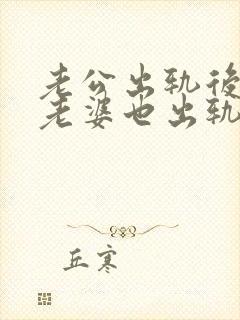 老公出轨後
老婆也出轨
丘寒